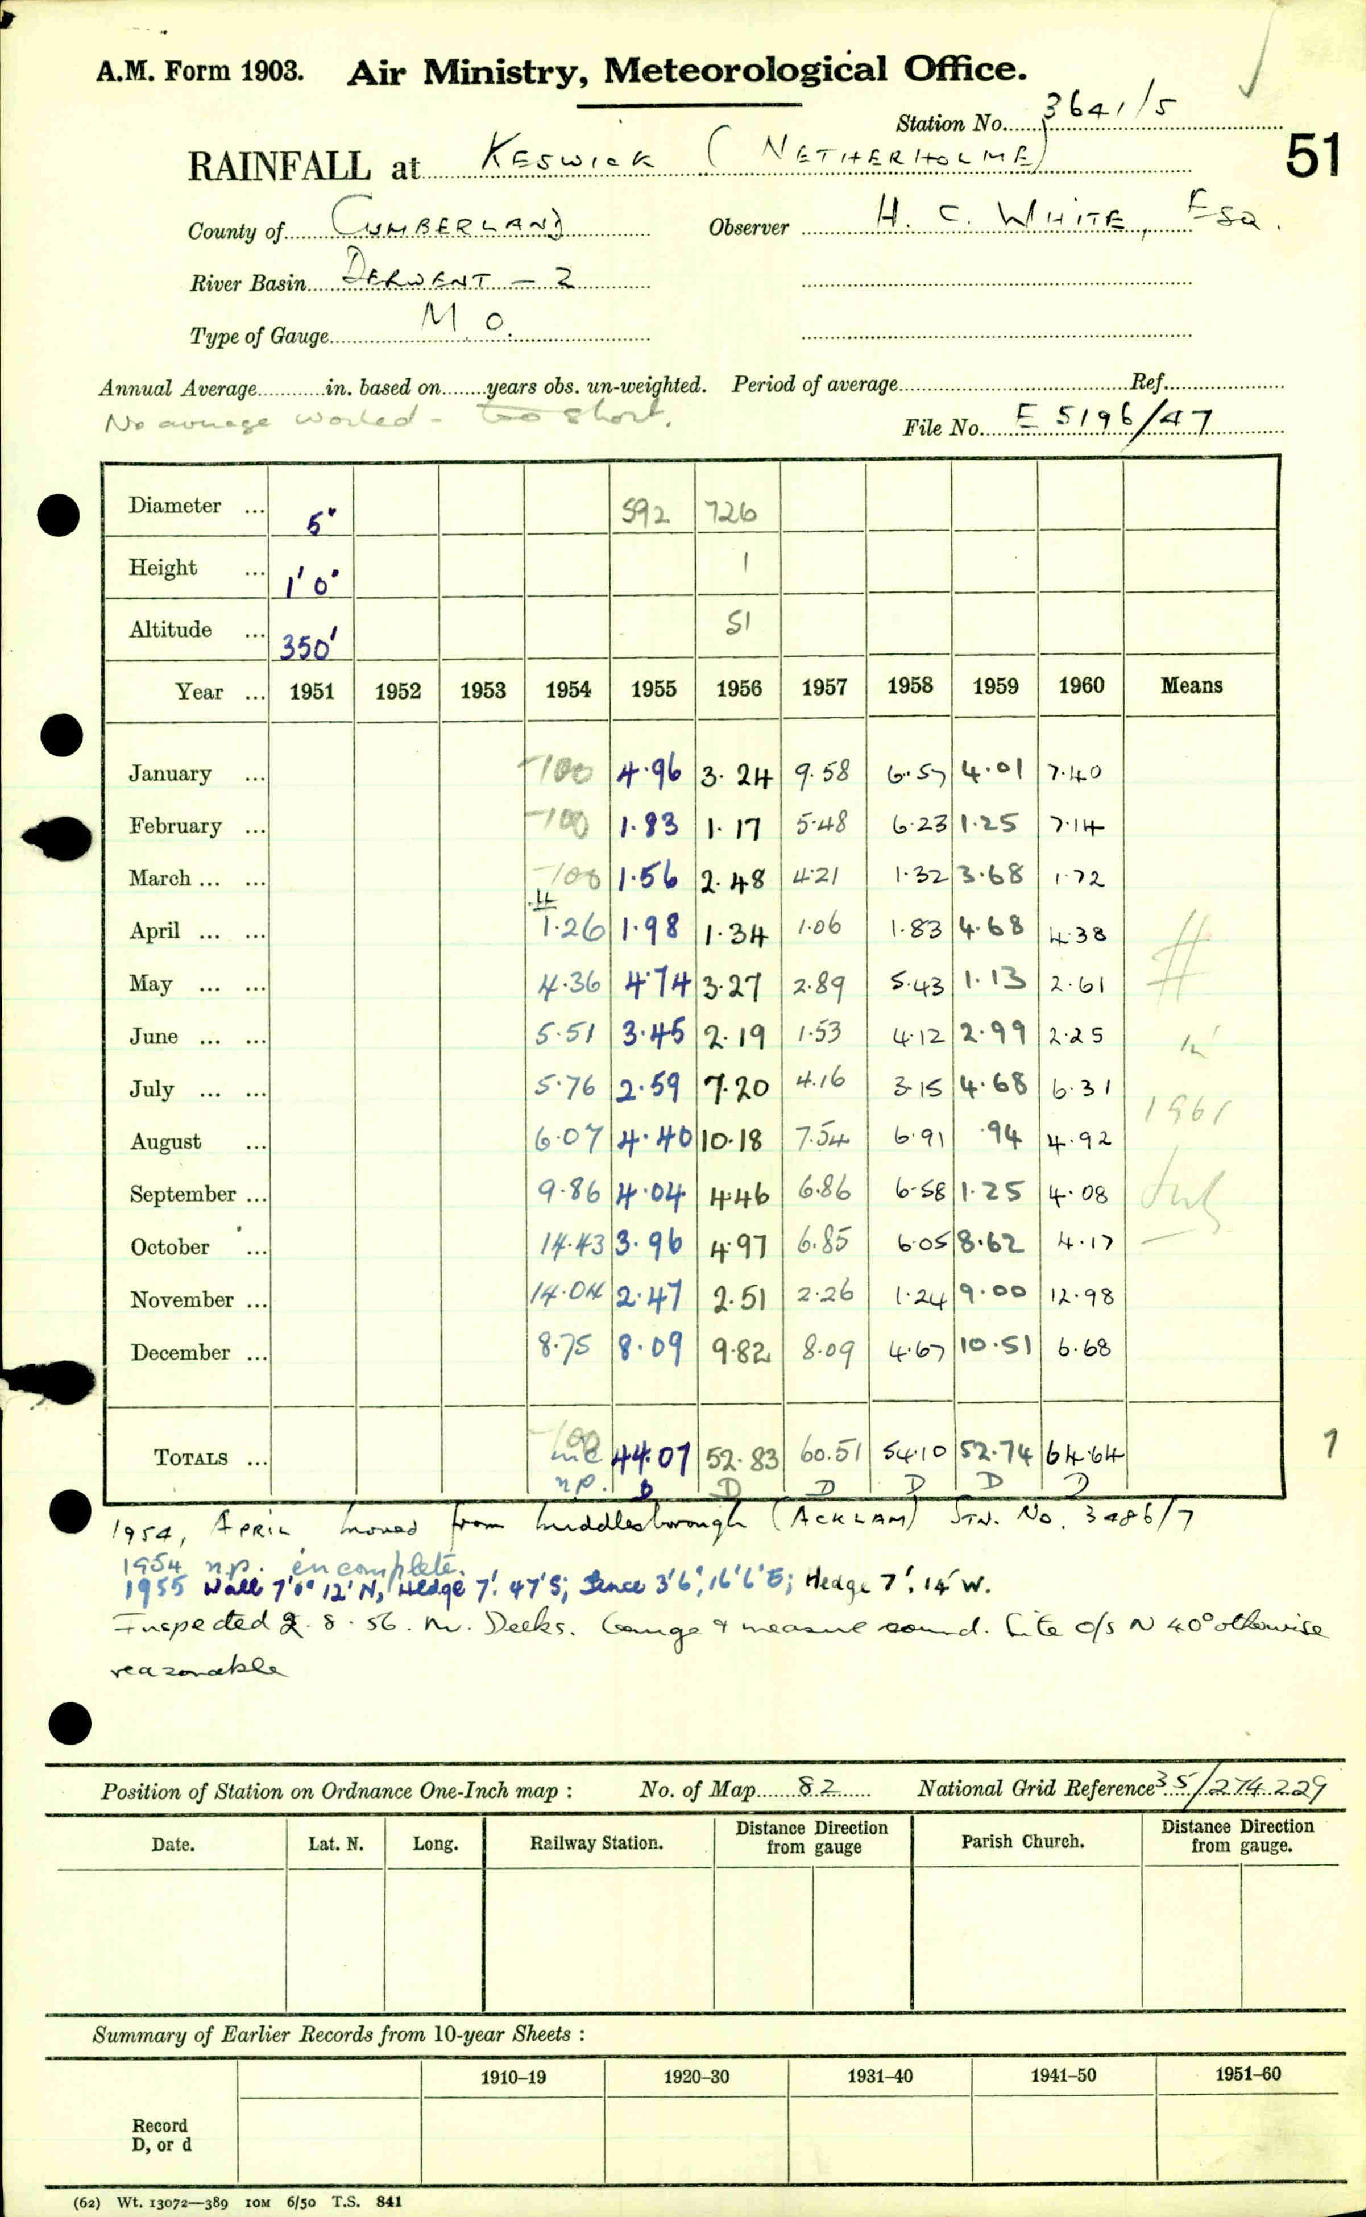 A.M. Form 1903. Air Ministry, Meteorological Office.
Station No. 3641/5
51
RAINFALL at KESWICK (NETHERHOLME)
County of CUMBERLAND Observer H. C. WHITE, Esq.
River Basin DERWENT - 2
Type of Gauge M.O.
Annual Average in. based on years obs. un-weighted. Period of average Ref.
No average worked - too short.
File No. E 5196/47
Diameter ... 5" 592 726
Height ... 1' 0" 1
Altitude ... 350' 51
Year ... 1951 1952 1953 1954 1955 1956 1957 1958 1959 1960 Means
January ... -100 4.96 3.24 9.58 6.57 4.01 7.40
February ... -100 1.83 1.17 5.48 6.23 1.25 7.14
March ... ... -100 1.56 2.48 4.21 1.32 3.68 1.72
#
April ... ... 1.26 1.98 1.34 1.06 1.83 4.68 4.38
May ... ... 4.36 4.74 3.27 2.89 5.43 1.13 2.61 #
June ... ... 5.51 3.45 2.19 1.53 4.12 2.99 2.25 in
July ... ... 5.76 2.59 7.20 4.16 3.15 4.68 6.31
August ... 6.07 4.40 10.18 7.54 6.91 .94 4.92 1961
September ... 9.86 4.04 4.46 6.86 6.58 1.25 4.08 July
October ... 14.43 3.96 4.97 6.85 6.05 8.62 4.17
November ... 14.04 2.47 2.51 2.26 1.24 9.00 12.98
December ... 8.75 8.09 9.82 8.09 4.67 10.51 6.68
-100
TOTALS ... inc 44.07 52.83 60.51 54.10 52.74 64.64 1
n.p. D D D D D D
1954, APRIL moved from Middlesborough (ACKLAM) STN. No. 3486/7
1954 n.p. incomplete.
1955 Wall 7'0" 12' N, Hedge 7', 47' S; Fence 3'6", 16'6" E; Hedge 7', 14' W.
Inspected 2.8.56. Mr. Deeks. Gauge & measure sound. Site o/s N 40° otherwise
reasonable
Position of Station on Ordnance One-Inch map : No. of Map 82 National Grid Reference 35/274229
Date. Lat. N. Long. Railway Station. Distance Direction from gauge Parish Church. Distance Direction from gauge.
Summary of Earlier Records from 10-year Sheets :
1910–19 1920–30 1931–40 1941–50 1951–60
Record
D, or d
(62) Wt. 13072—389 10M 6/50 T.S. 841